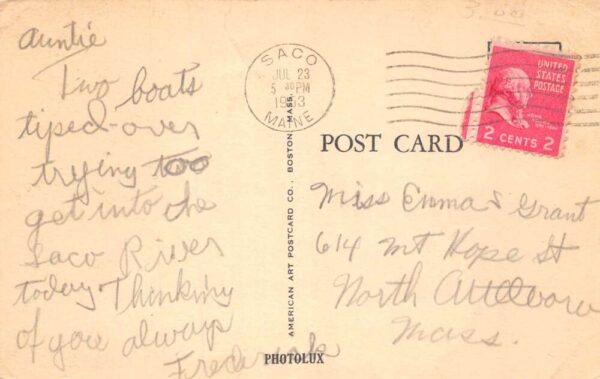 3.00
Auntie
Two boats
tiped over
trying too
get into the
Saco River
today Thinking
of you always
Frederick
AMERICAN ART POSTCARD CO., BOSTON, MASS.
PHOTOLUX
SACO
JUL 23
5 30 PM
1953
MAINE
UNITED
STATES
POSTAGE
2 CENTS 2
POST CARD
Miss Emma S Grant
614 Mt Hope St
North Attleboro
Mass.